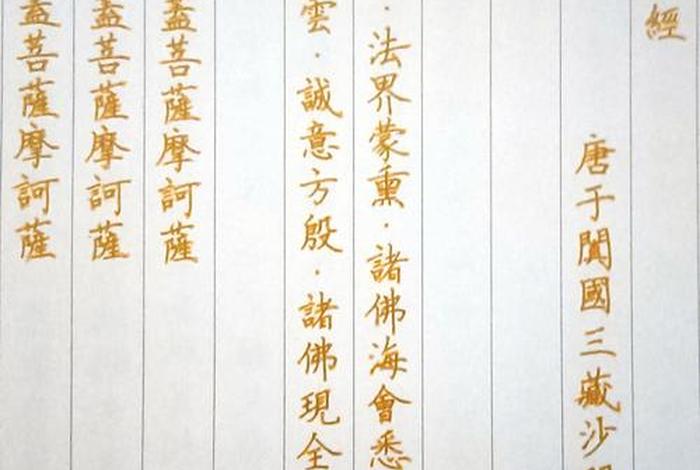 經
唐于闐國三藏沙
·法界蒙熏·諸佛海會悉
雲·誠意方殷·諸佛現全
蓋菩薩摩訶薩
蓋菩薩摩訶薩
蓋菩薩摩訶薩